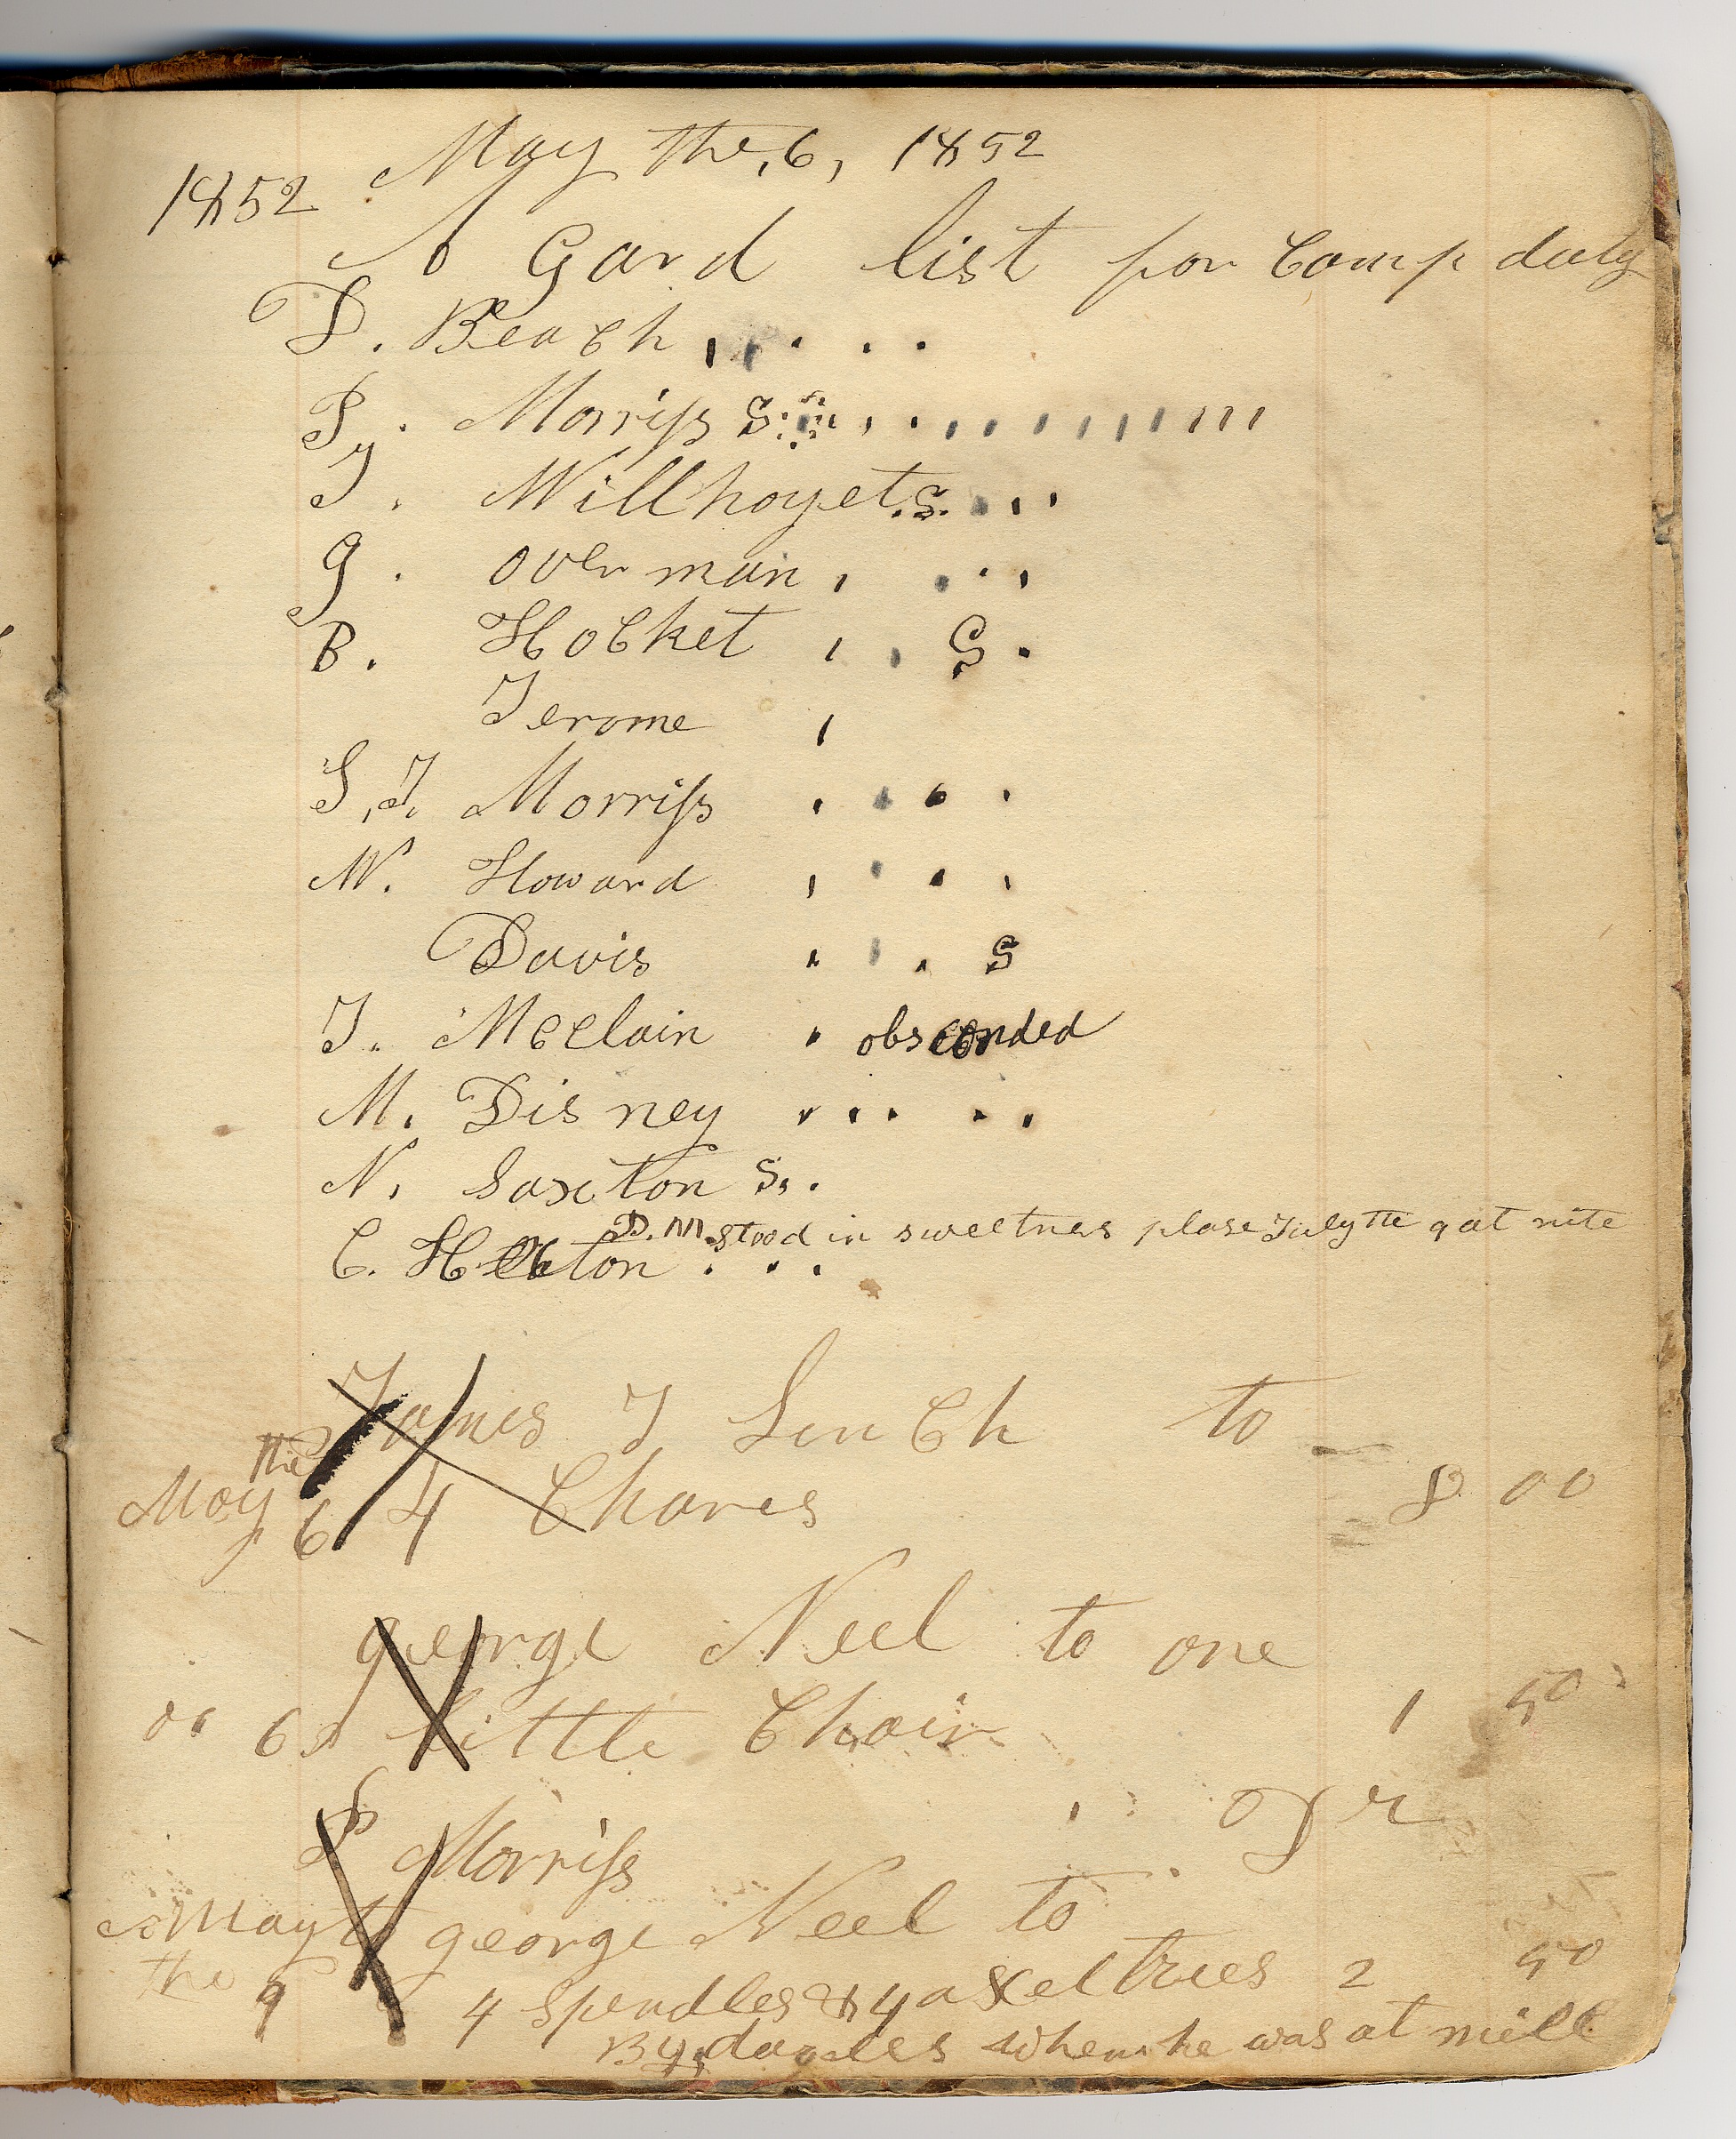 May the, 6, 1852
1852
A Gard list for Comp duty
D. Beach
P y. Morriss S
J. Willhoyet S
g. overman
B. Hocket S
Jerome
S, J. Morriss
W. Howard
Davis S
J. Mcclain obsconded
M. Disney
N. Saxton S
D. M. stood in sweetnes plase July the 9 at nite
C. Hecton
James J Linch to
the
May 6 4 Chares 8 00
george Neel to one
6 little Chair 1 50
P Morriss
May george Neel to
the 9 4 spendles & 4 axeltrees 2 50
By when he was at mill